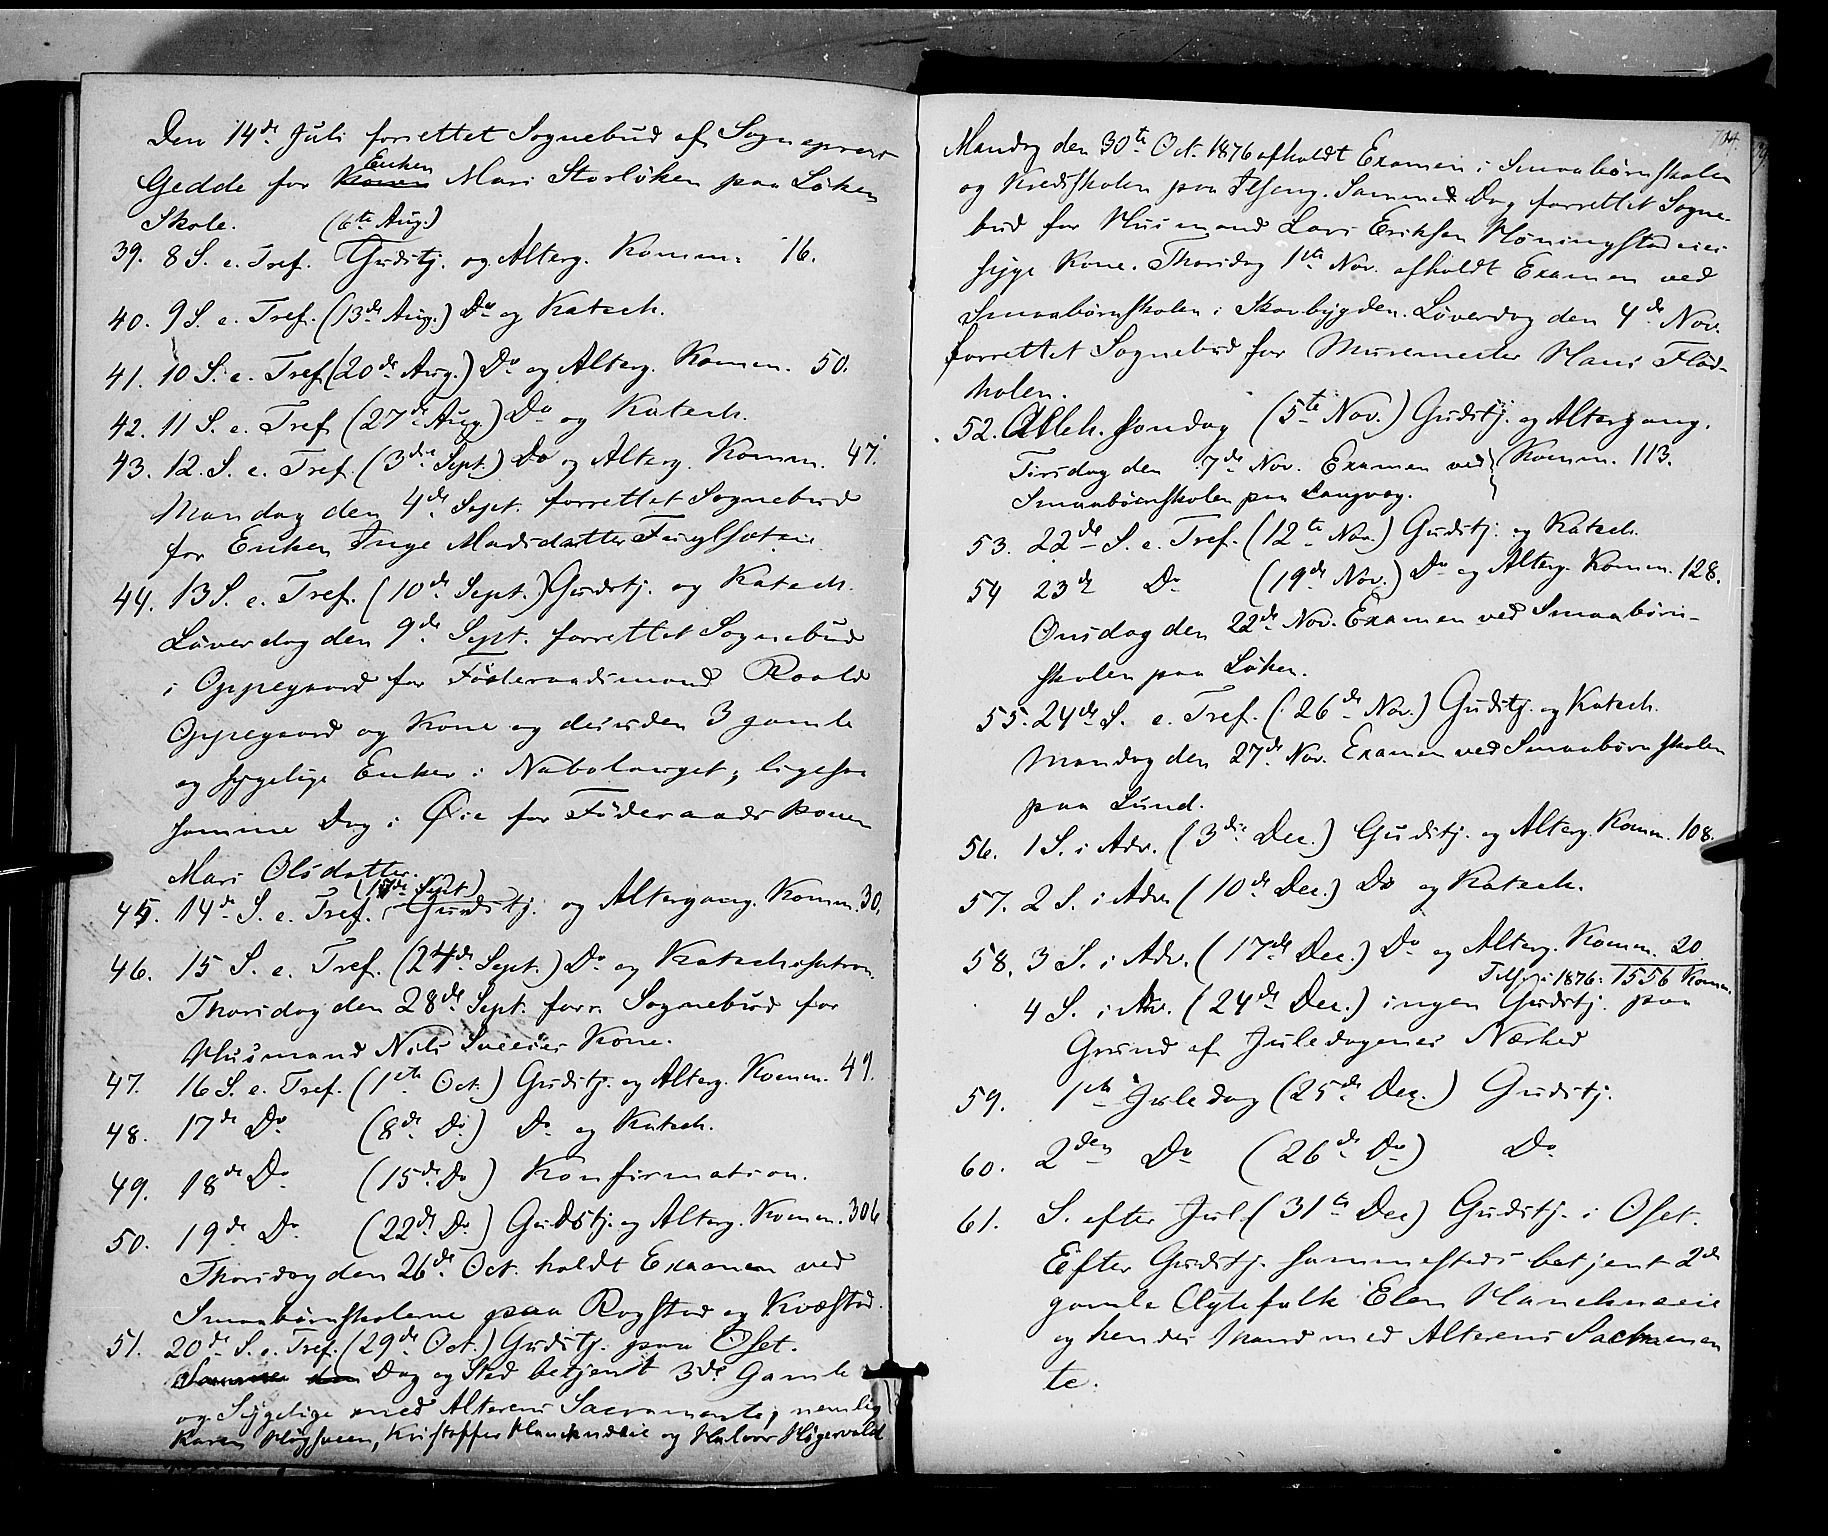 Den 14de Juli forrettet Sognebud af Sognepræst
Gedde for Konen Enken Mari Storløken paa Løken
Skole.
39. 8 S. e. Tref. (6te Aug.) Gudstj. og Alterg. Komm. 16.
40. 9 S. e. Tref. (13de Aug.) Do og Katech.
41. 10 S. e. Tref. (20de Aug.) Do og Alterg. Komm. 50.
42. 11 S. e. Tref. (27de Aug.) Do og Katech.
43. 12. S. e. Tref. (3die Sept.) Do og Alterg. Komm. 47.
Mandag den 4de Sept. forrettet Sognebud
for Enken Inge Madsdatter
44. 13 S. e. Tref. (10de Sept.) Gudstj. og Katech.
Løverdag den 9de Sept. forrettet Sognebud
i Oppegaard for Føderaadsmand Roald
Oppegaard og Kone og desuden 3 gamle
og sygelige Enker i Nabolauget; ligesaa
samme Dag i Øie for Føderaadskonen
Mari Olsdatter.
45. 14de S. e. Tref. (17de Sept) Gudstj. og Altergang. Komm. 30.
46. 15 S. e. Tref. (24de Sept.) Do og Katechisation.
Thorsdag den 28de Sept. forr. Sognebud for
Husmand Nils Sveeies Kone.
47. 16 S. e. Tref. (1ste Oct.) Gudstj. og Alterg. Komm. 49.
48. 17de Do (8de Do) Do og Katech.
49. 18de Do (15de Do) Konfirmation.
50. 19de Do (22de Do) Gudstj. og Alterg. Komm. 306
Thorsdag den 26de Oct. holdt Examen ved
Smaabørnskolerne paa Rogstad og Kvæstad.
51. 20de S. e. Tref. (29de Oct.) Gudstj. paa Oset.
Samme den Dag og Sted betjent 3de Gamle
og Sygelige med Alterens Sacramente, nemlig
Karen Høgsveen, Kristoffer og Halvor
Mandag den 30te Oct. 1876 afholdt Examen i Smaabørnskolen
og Kredsskolen paa Ilseng. Samme Dag forrettet Sogne-
bud for Husmand Lars Eriksen Hønningstadeies
syge Kone. Thorsdag 1ste Nov. afholdt Examen ved
Smaabørnskolen i Skovbygden. Løverdag den 4de Nov.
forrettet Sognebud for Muremester Hans Flod-
holen.
52. Alleh. Søndag (5te Nov.) Gudstj. og Altergang.
Tirsdag den 7de Nov. Examen ved Komm. 113.
Smaabørnskolen paa Langveg.
53. 22de S. e. Tref. (12te Nov.) Gudstj. og Katech.
54 23de Do (19de Nov.) Do og Alterg. Komm. 128.
Onsdag den 22de Nov. Examen ved Smaabørn-
skolen paa Løken.
55. 24de S. e. Tref. (26de Nov.) Gudstj. og Katech.
Mandag den 27de Nov. Examen ved Smaabørnskolen
paa Lund.
56. 1 S. i Adv. (3die Dec.) Gudstj. og Alterg. Komm. 108.
57. 2 S. i Adv. (10de Dec.) Do og Katech.
58. 3 S. i Adv. (17de Dec.) Do og Alterg. Komm. 20
Tils. i 1876: 1556 Komm.
4 S. i Adv. (24de Dec.) ingen Gudstj. paa
Grund af Juledagenes Nærhed
59. 1ste Juledag (25de Dec.) Gudstj.
60. 2den Do (26de Do) Do
61. S. efter Jul (31te Dec) Gudstj. i Oset.
Efter Gudstj. sammesteds betjent 2de
gamle Elen
og hendes Mand med Alterens Sacramen
te.